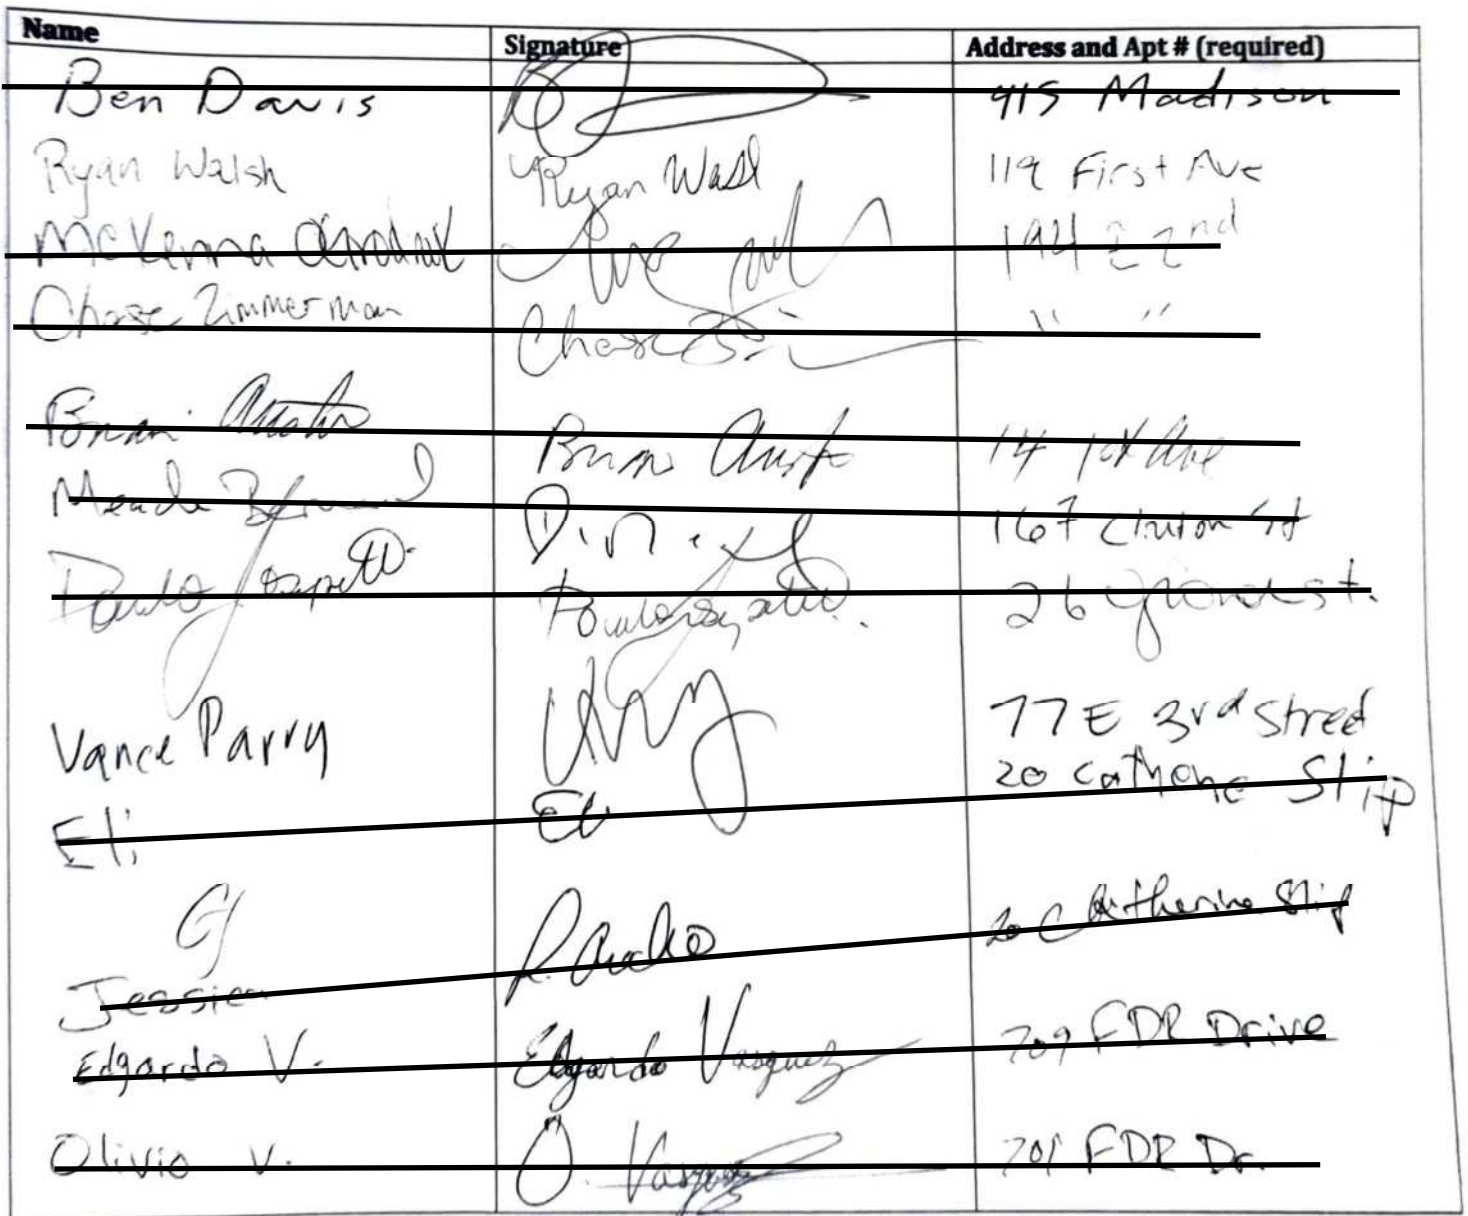 Name Signature Address and Apt # (required)
Ben Davis 415 Madison
Ryan Walsh Ryan Walsh 119 First Ave
McKenna 194 E 2nd
Chase Zimmerman Chase " "
Brian Austin Brian Aust 14 1st Ave
Meade 167 Clinton St
Paulo 26 Grand St.
Vance Parry 77 E 3rd Street
Eli Eli 20 Catherine Slip
Jessica 20 Catherine Slip
Edgardo V. Edgardo Vasquez 709 FDR Drive
Olivio V. O. Vasquez 701 FDR Dr.